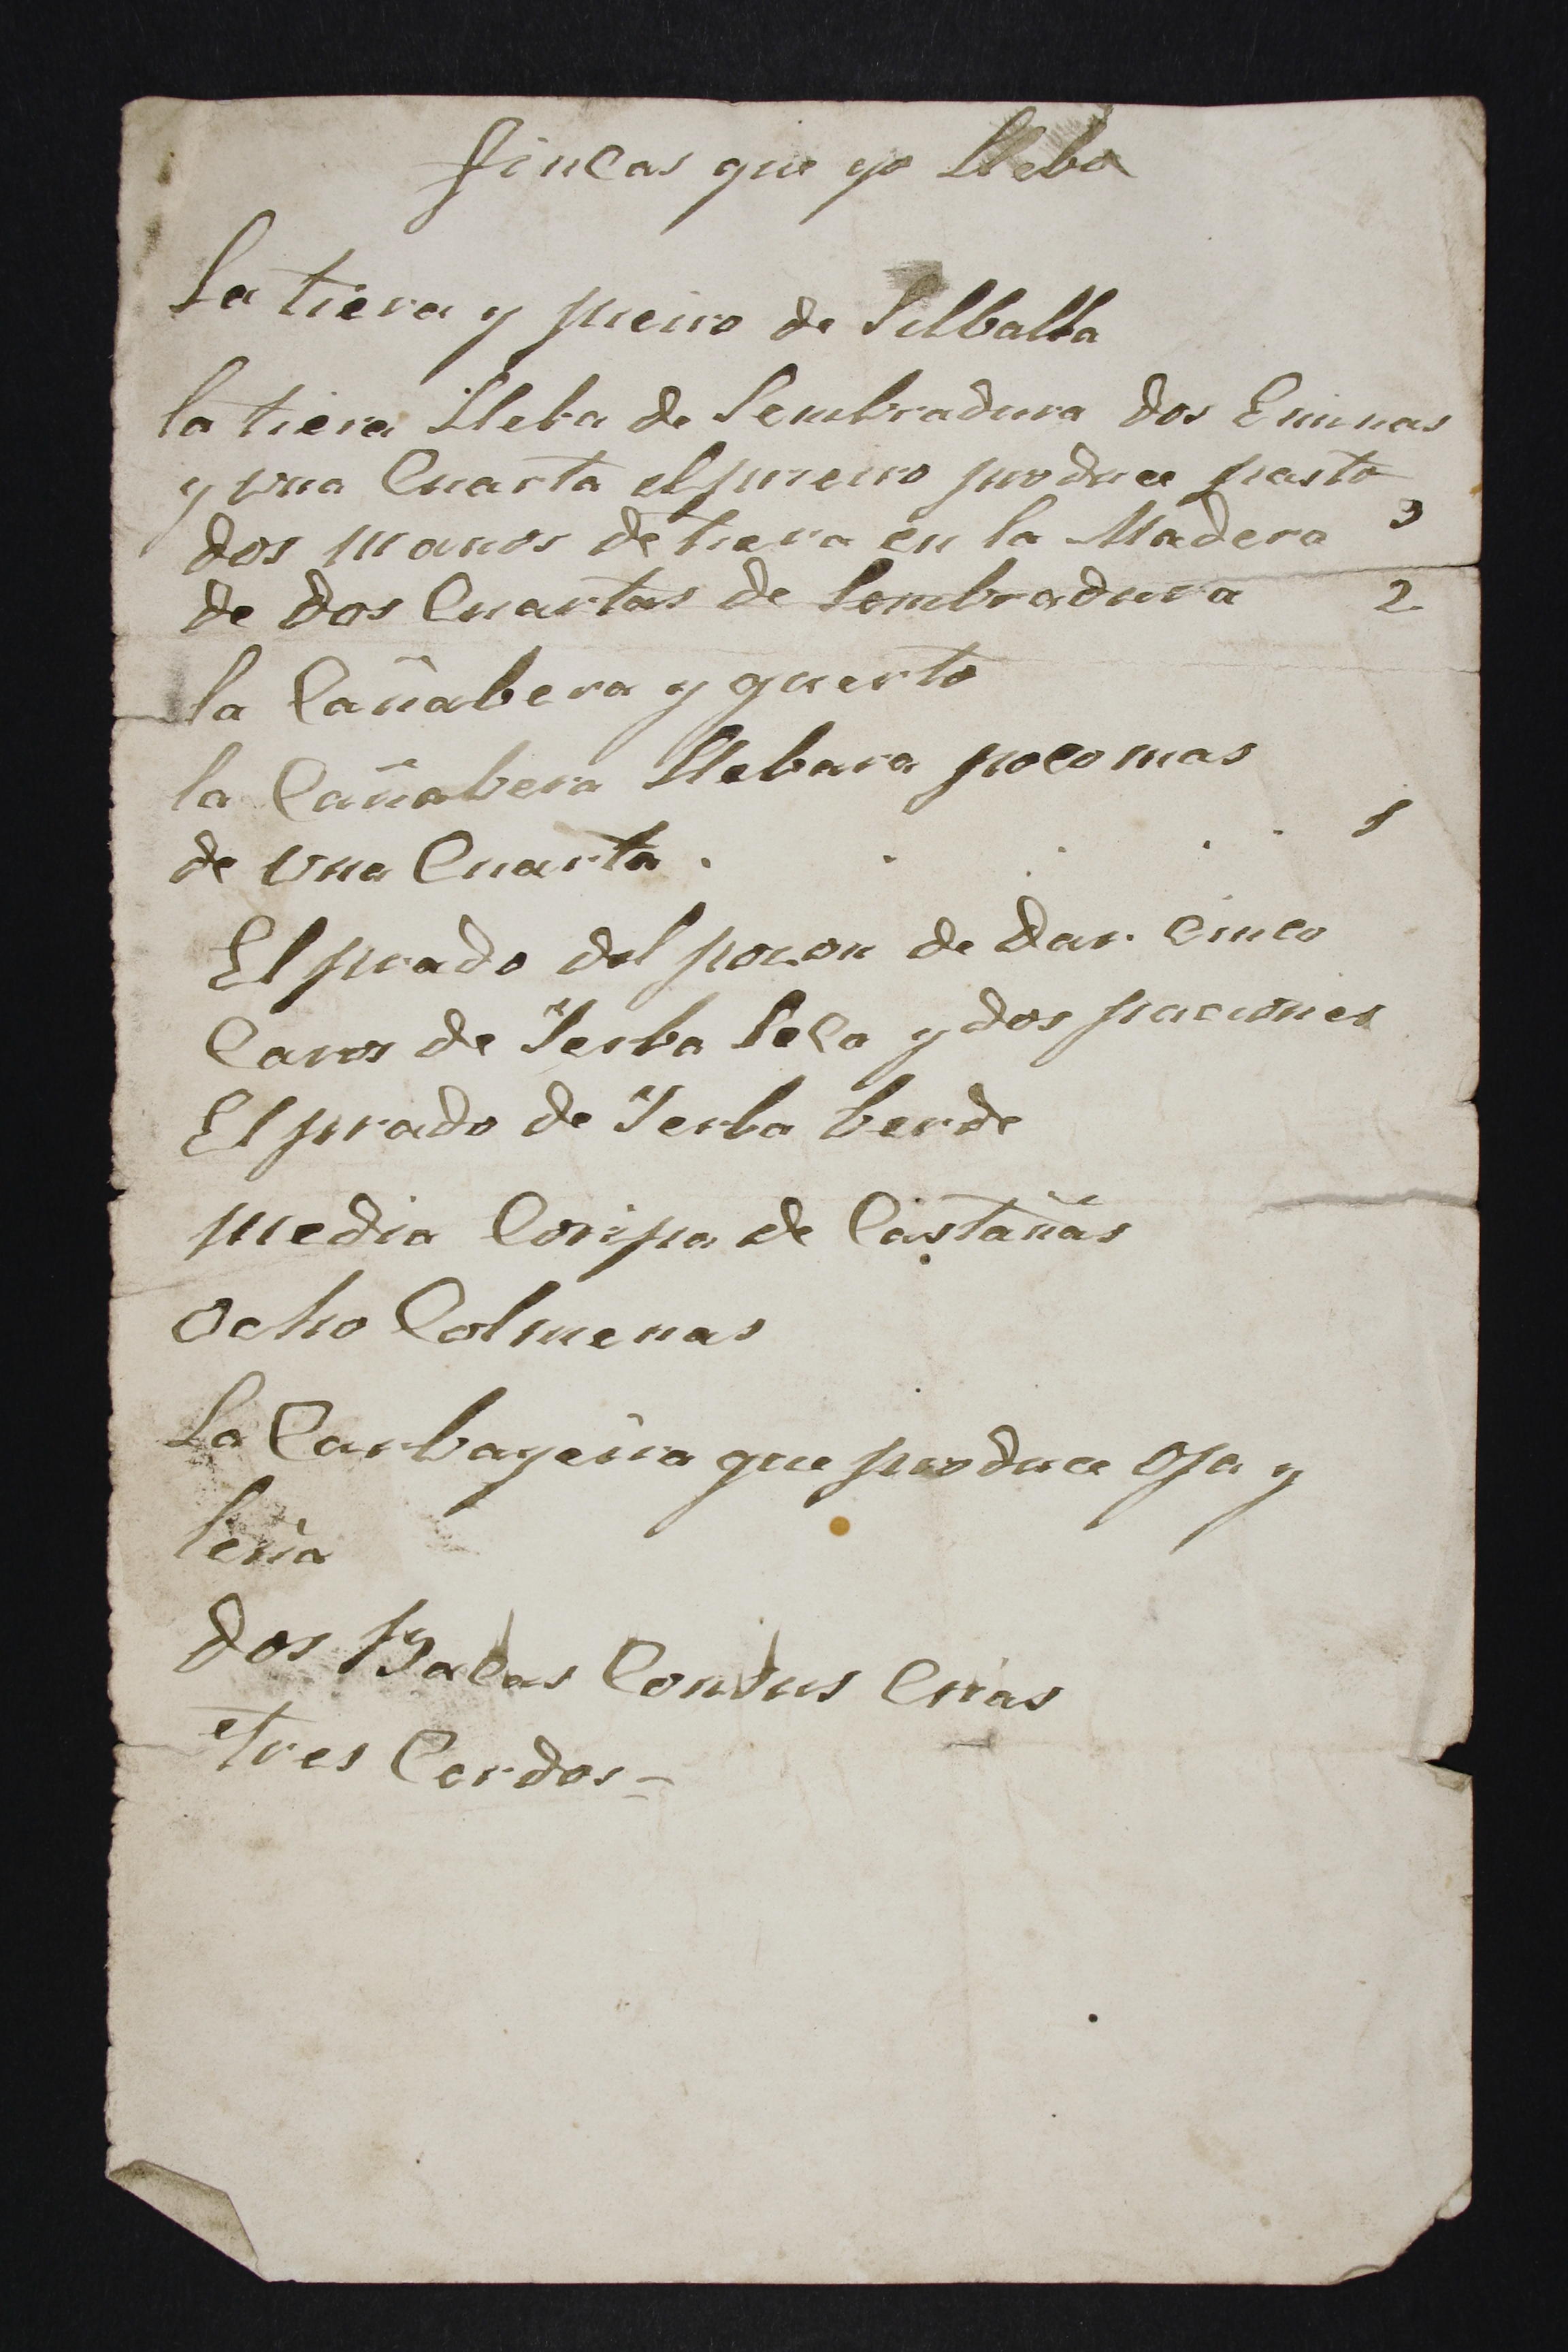 fincas que yo Llebo
La tiera y preiro de Silballa
la tiera Lleba de Sembradura dos Eminas
y una Cuarta el preiro produce pasto 3
dos manos de tiera en la Madera
de dos Cuartas de Sembradura 2
la Cañabera y guerto
la Cañabera Llebara poco mas
de una Cuarta . . . . . 1
El prado del pozon de dar cinco
Caros de Yerba Seca y dos paciones
El prado de Yerba berde
media Coripa de Castañas
ocho Colmenas
La Carbayeira que produce oja y
leña
dos Bacas Con sus Crias
tres Cerdos